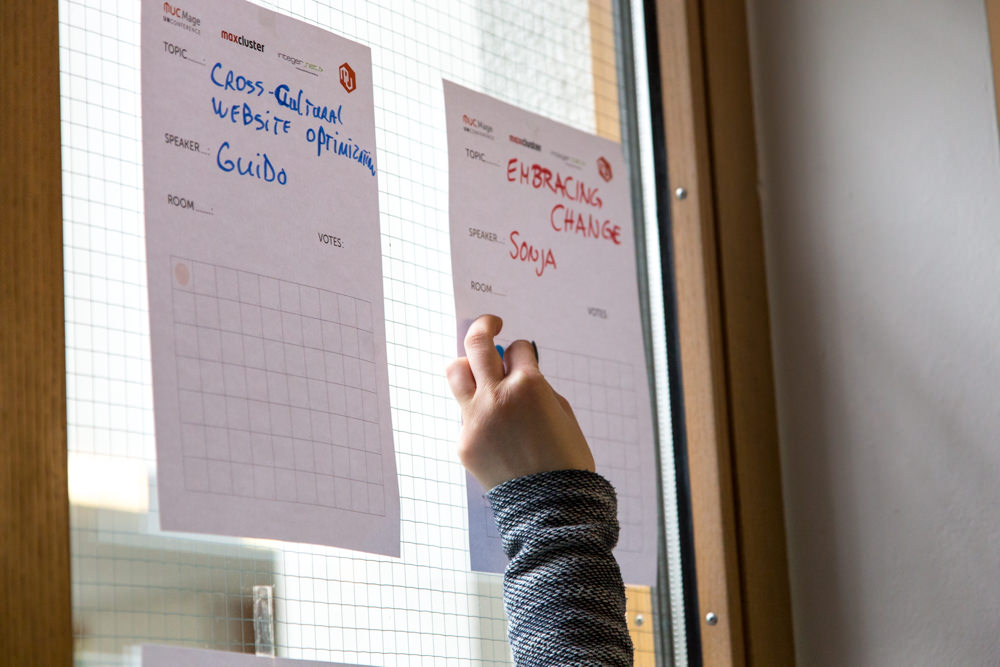 MUC.Mage
UNCONFERENCE
maxcluster
integer_net
TOPIC......:
CROSS-CULTURAL
WEBSITE OPTIMIZATION
SPEAKER...:
GUIDO
ROOM......:
VOTES:
MUC.Mage
UNCONFERENCE
maxcluster
integer_net
TOPIC......
EMBRACING
CHANGE
SPEAKER...
SONJA
ROOM......
VOTES: